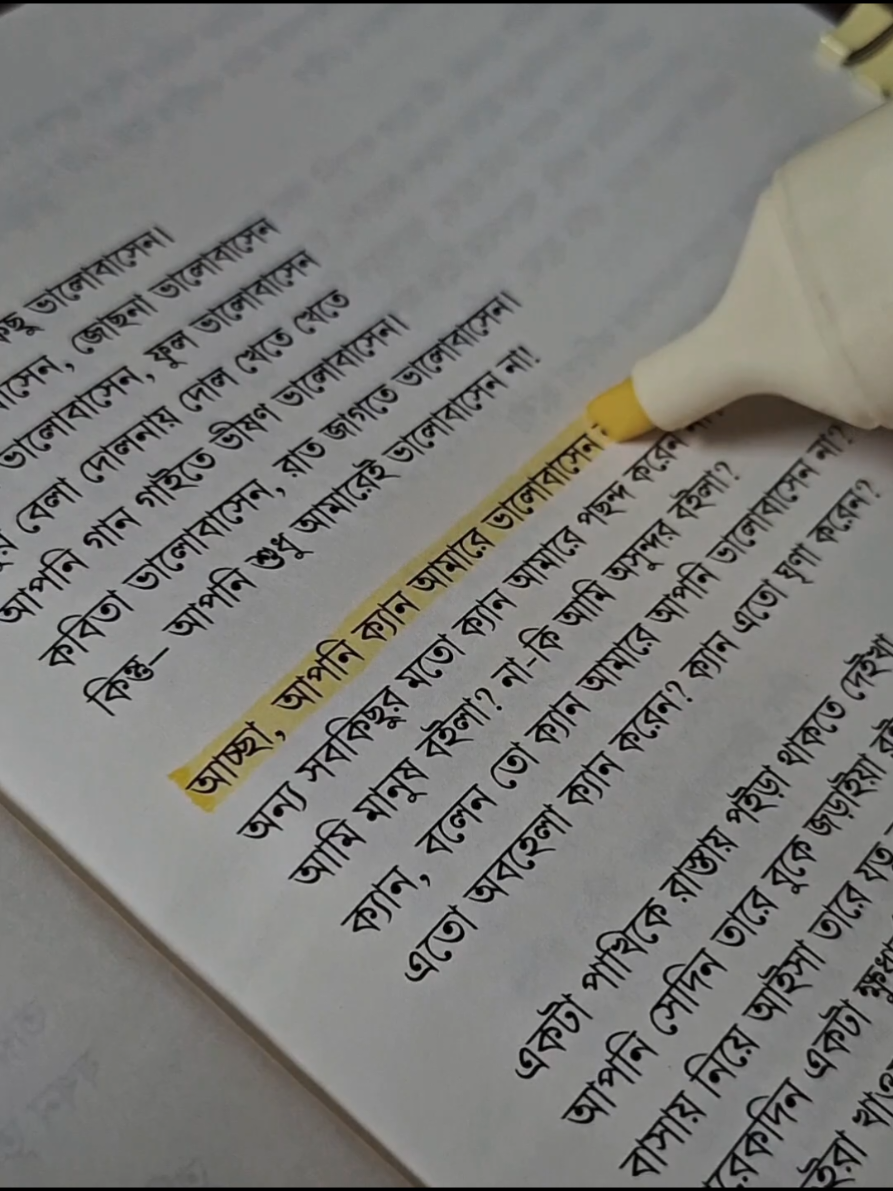 ভালোবাসেন।
জোছনা ভালোবাসেন
ভালোবাসেন, ফুল ভালোবাসেন
বেলা দোলনায় দোল খেতে খেতে
আপনি গান গাইতে ভীষণ ভালোবাসেন।
কবিতা ভালোবাসেন, রাত জাগতে ভালোবাসেন।
কিন্তু– আপনি শুধু আমারেই ভালোবাসেন না!
আচ্ছা, আপনি ক্যান আমারে ভালোবাসেন
অন্য সবকিছুর মতো ক্যান আমারে পছন্দ করেন
আমি মানুষ বইলা? না-কি আমি অসুন্দর বইলা?
ক্যান, বলেন তো ক্যান আমারে আপনি ভালোবাসেন না?
এতো অবহেলা ক্যান করেন? ক্যান এতো ঘৃণা করেন?
একটা পাখিকে রাস্তায় পইড়া থাকতে দেইখা
আপনি সেদিন তারে বুকে জড়াইয়া
বাসায় নিয়ে আইসা তারে যত্ন
একটা